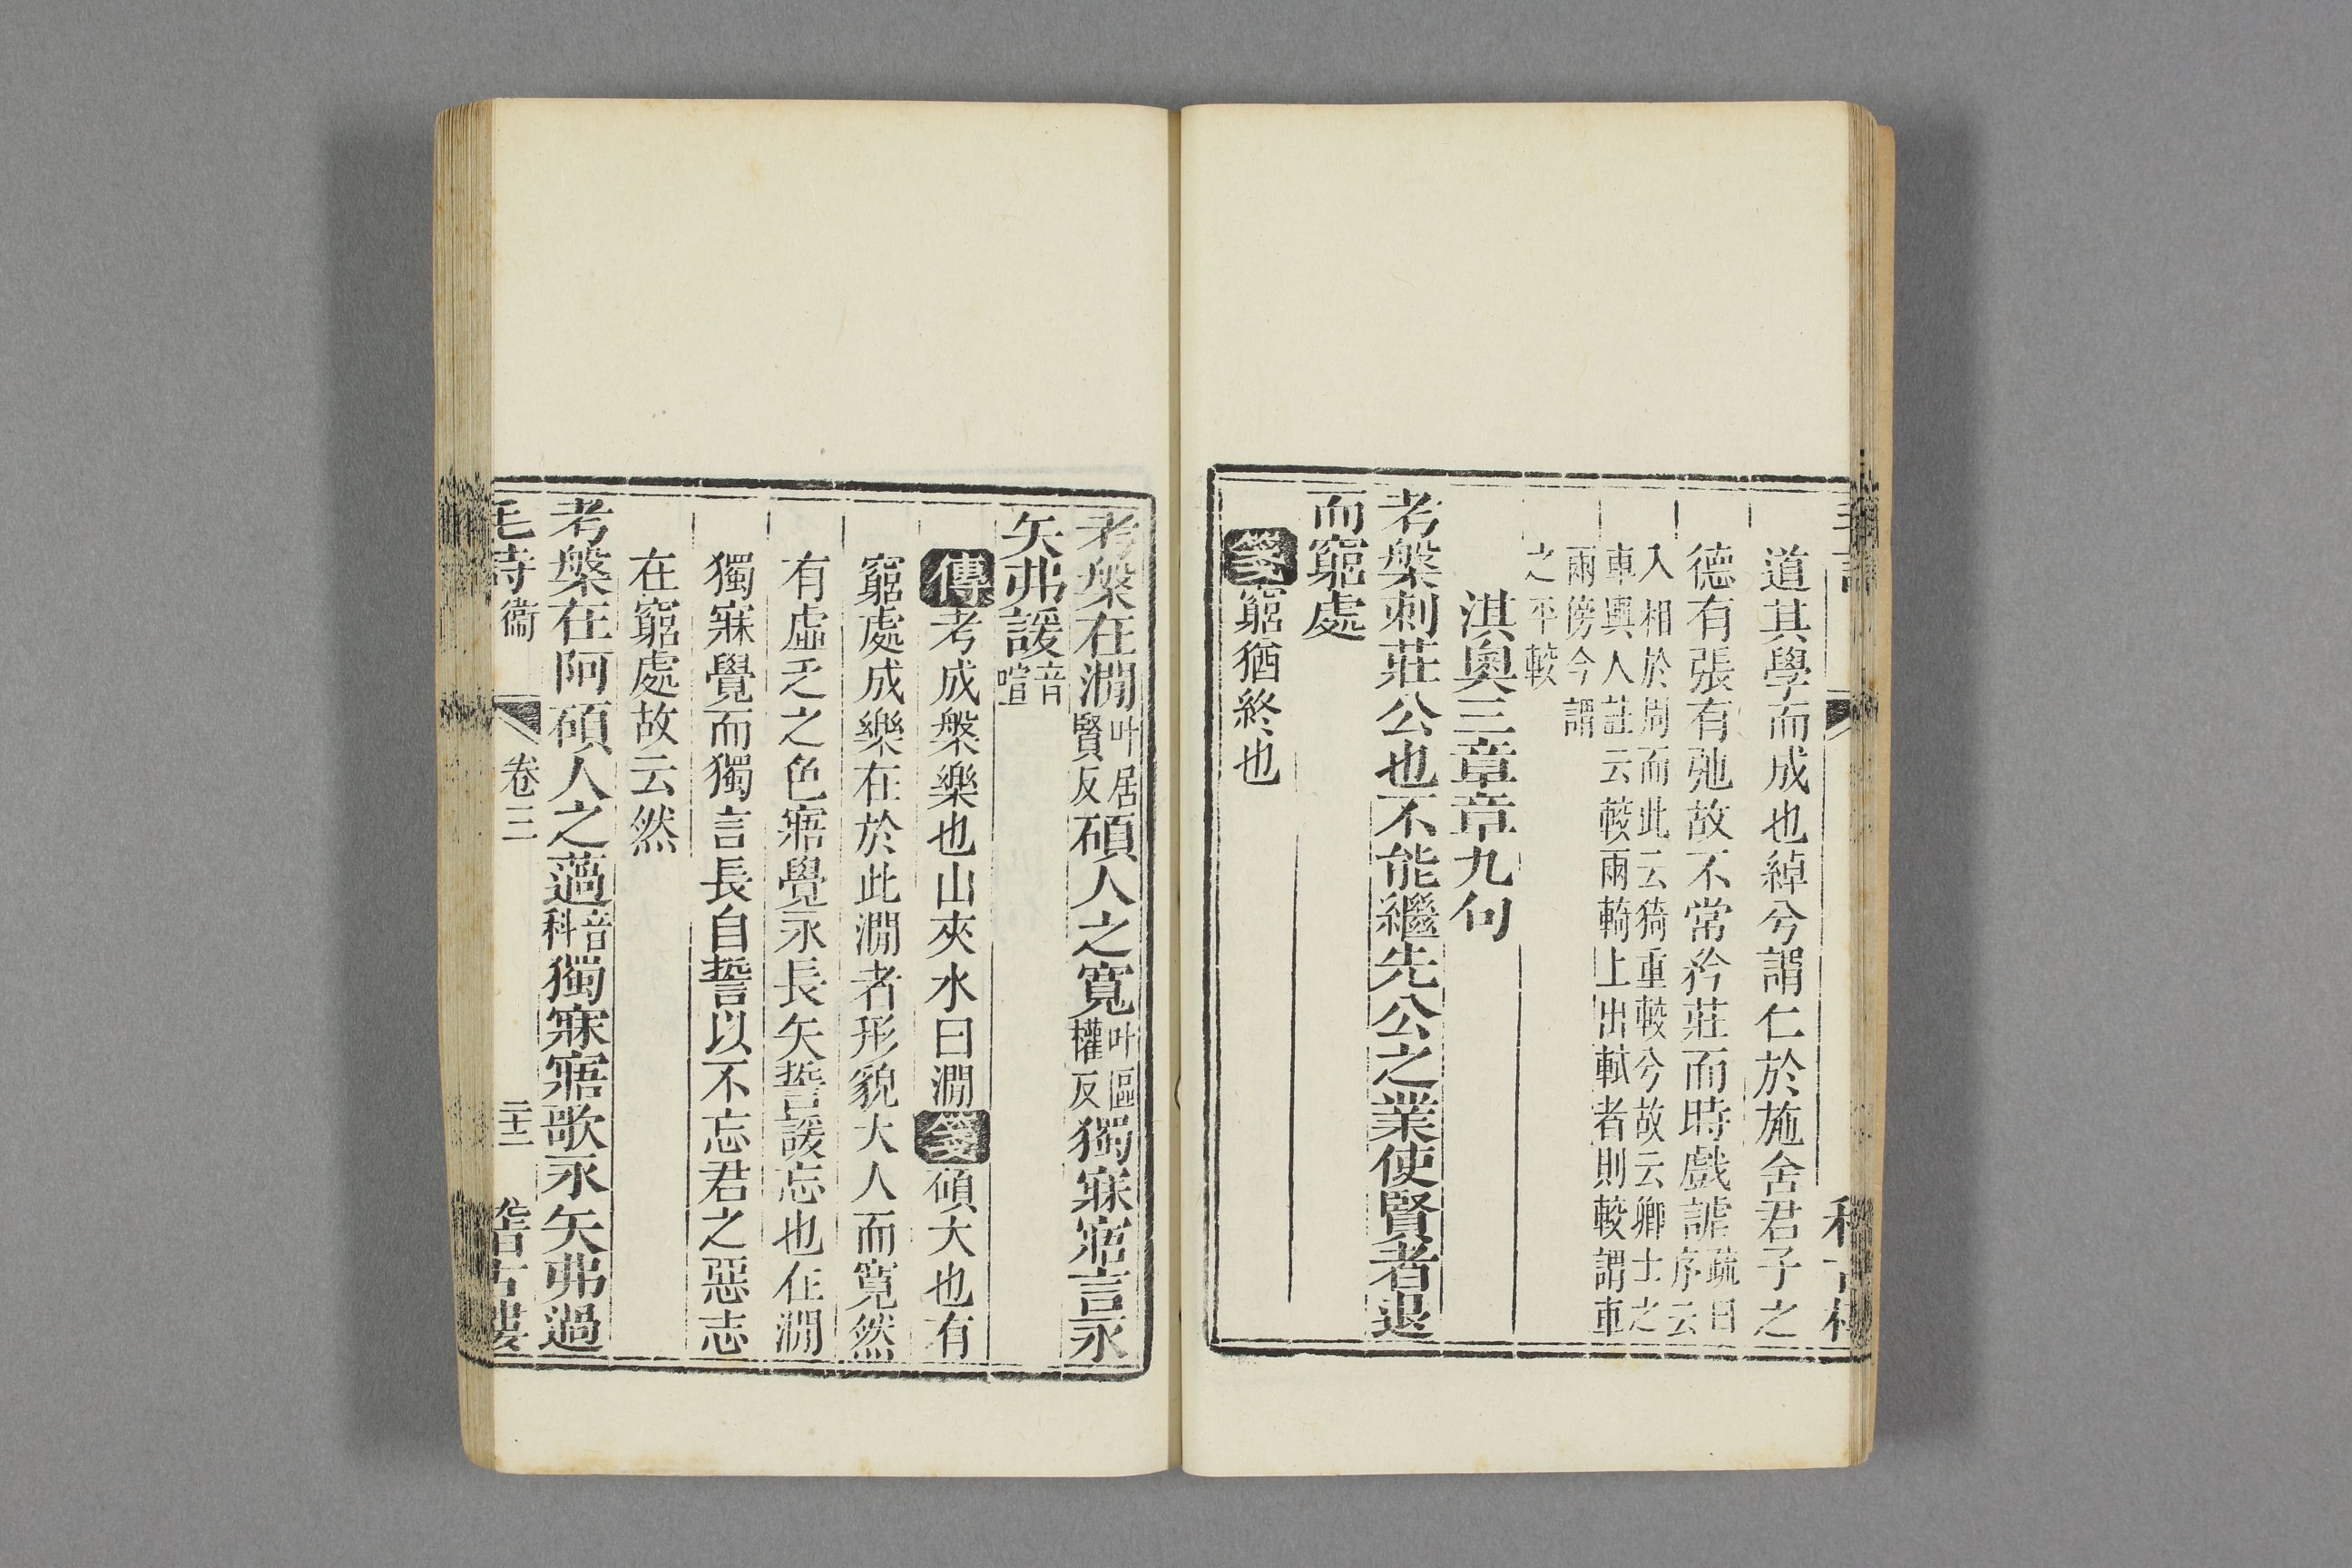 道其學而成也綽兮謂仁於施舍君子之
德有張有弛故不常矜莊而時戲謔疏曰序云
入相於周而此云猗重較兮故云卿士之
車輿人註云較兩輢上出軾者則較謂車
兩傍今謂
之平較
淇奧三章章九句
考槃刺莊公也不能繼先公之業使賢者退
而窮處
箋窮猶終也
考槃在澗叶居賢反碩人之寬叶區權反獨寐寤言永
矢弗諼音喧
傳考成槃樂也山夾水曰澗箋碩大也有
窮處成樂在於此澗者形貌大人而寬然
有虛乏之色寤覺永長矢誓諼忘也在澗
獨寐覺而獨言長自誓以不忘君之惡志
在窮處故云然
考槃在阿碩人之薖音科獨寐寤歌永矢弗過
毛詩衞 卷三 二十二 稽古樓